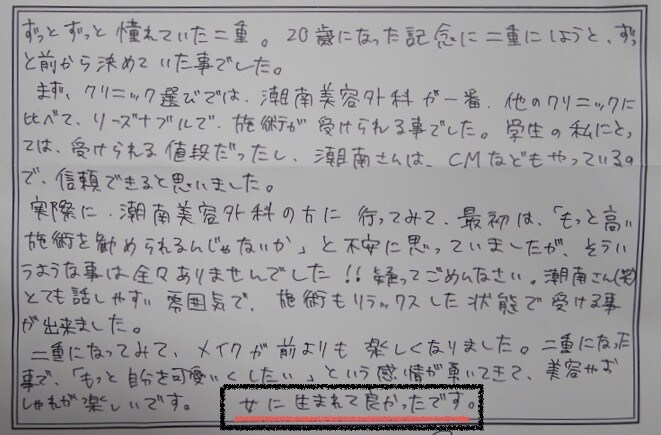 ずっとずっと憧れていた二重。20歳になった記念に二重にしようと、ずっ
と前から決めていた事でした。
まず、クリニック選びでは、湘南美容外科が一番、他のクリニックに
比べて、リーズナブルで、施術が受けられる事でした。学生の私にとっ
ては、受けられる値段だったし、湘南さんは、CMなどもやっているの
で、信頼できると思いました。
実際に、湘南美容外科の方に行ってみて、最初は、「もっと高い
施術を勧められるんじゃないか」と不安に思っていましたが、そうい
うような事は全々ありませんでした!!疑ってごめんなさい。湘南さん(笑)
とても話しやすい雰囲気で、施術もリラックスした状態で受ける事
が出来ました。
二重になってみて、メイクが前よりも楽しくなりました。二重になった
事で、「もっと自分を可愛いくしたい」という感情が湧いてきて、美容やお
しゃれが楽しいです。 女に生まれて良かったです。